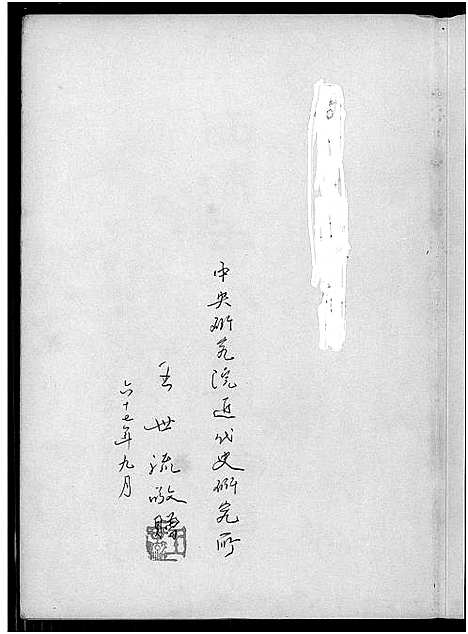 中央研究院近代史研究所
王世流敬贈
六十七年九月